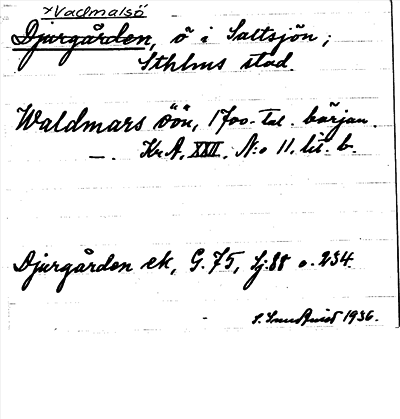 ×Vadmalsö
Djurgården, ö i Saltsjön;
Sthlms stad.
Waldmars öön, 1700-tal. början.
—. Kr.A. XXII. N:o 11. lit. b.
Djurgården ek, G.75, Sj:88 o. 234.
S. 1936.